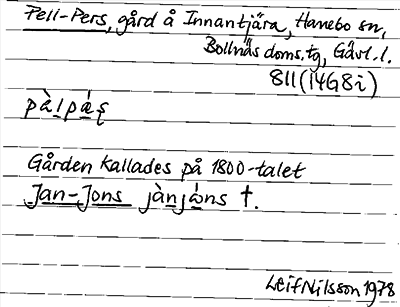 Pell-Pers, gård å Innantjära, Hanebo sn,
Bollnäs doms.tg, Gävl. l.
811 (14G8i)
pàlpás̨
Gården kallades på 1800-talet
Jan-Jons jànjóns †.
Leif Nilsson 1978